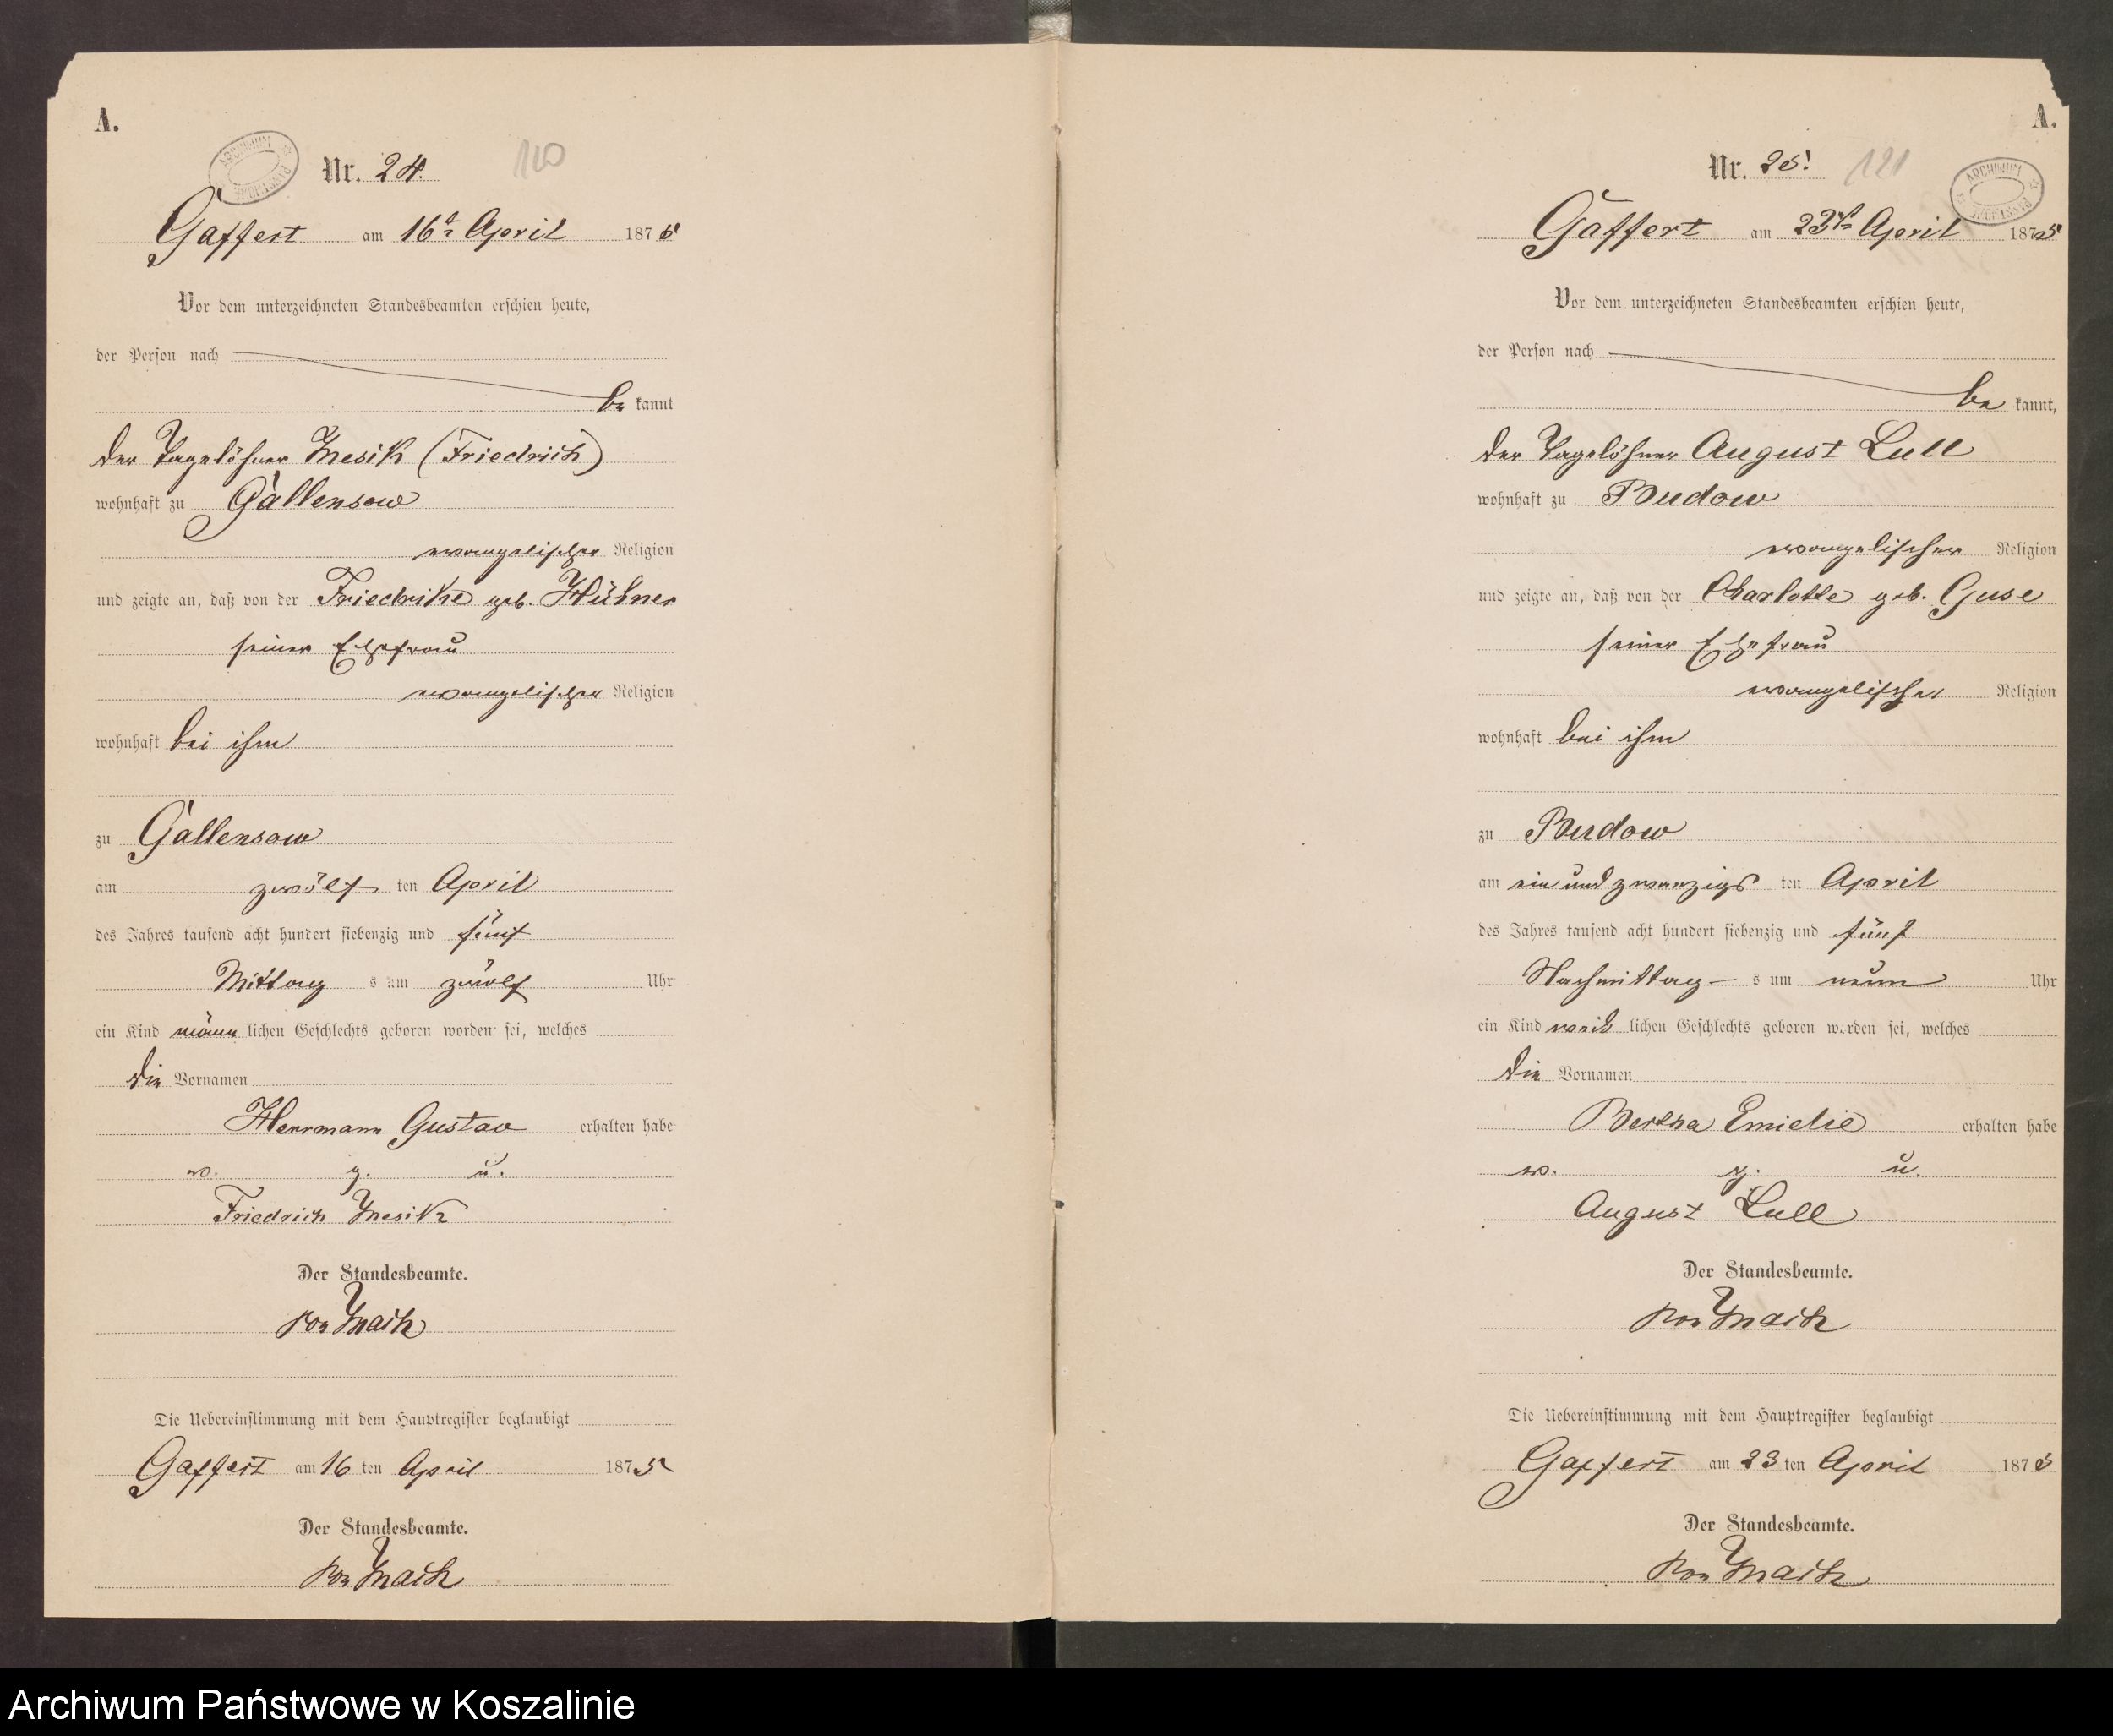 A.
ARCHIWUM PAŃSTWOWE
Nr. 24. 120
Gaffert am 16t April 1875
Vor dem unterzeichneten Standesbeamten erschien heute,
der Person nach
be kannt
der Tagelöhner Mesik (Friedrich)
wohnhaft zu Gallensow
evangelischer Religion
und zeigte an, daß von der Friedrike geb. Hübner
seiner Ehefrau
evangelischer Religion
wohnhaft bei ihm
zu Gallensow
am zwölf ten April
des Jahres tausend acht hundert siebenzig und fünf
Mittag s um zwölf Uhr
ein Kind männ lichen Geschlechts geboren worden sei, welches
die Vornamen
Herrmann Gustav erhalten habe
v. g. u.
Friedrich Mesik
Der Standesbeamte.
von Mach
Die Uebereinstimmung mit dem Hauptregister beglaubigt
Gaffert am 16 ten April 1875
Der Standesbeamte.
von Mach
A.
Nr. 25. 121
ARCHIWUM PAŃSTWOWE
Gaffert am 23t April 1875
Vor dem unterzeichneten Standesbeamten erschien heute,
der Person nach
be kannt,
der Tagelöhner August Lull
wohnhaft zu Budow
evangelischer Religion
und zeigte an, daß von der Charlotte geb. Guse
seiner Ehefrau
evangelischer Religion
wohnhaft bei ihm
zu Budow
am ein und zwanzigs ten April
des Jahres tausend acht hundert siebenzig und fünf
Nachmittag s um neun Uhr
ein Kind weib lichen Geschlechts geboren worden sei, welches
die Vornamen
Bertha Emielie erhalten habe
v. g. u.
August Lull
Der Standesbeamte.
von Mach
Die Uebereinstimmung mit dem Hauptregister beglaubigt
Gaffert am 23 ten April 1875
Der Standesbeamte.
von Mach
Archiwum Państwowe w Koszalinie